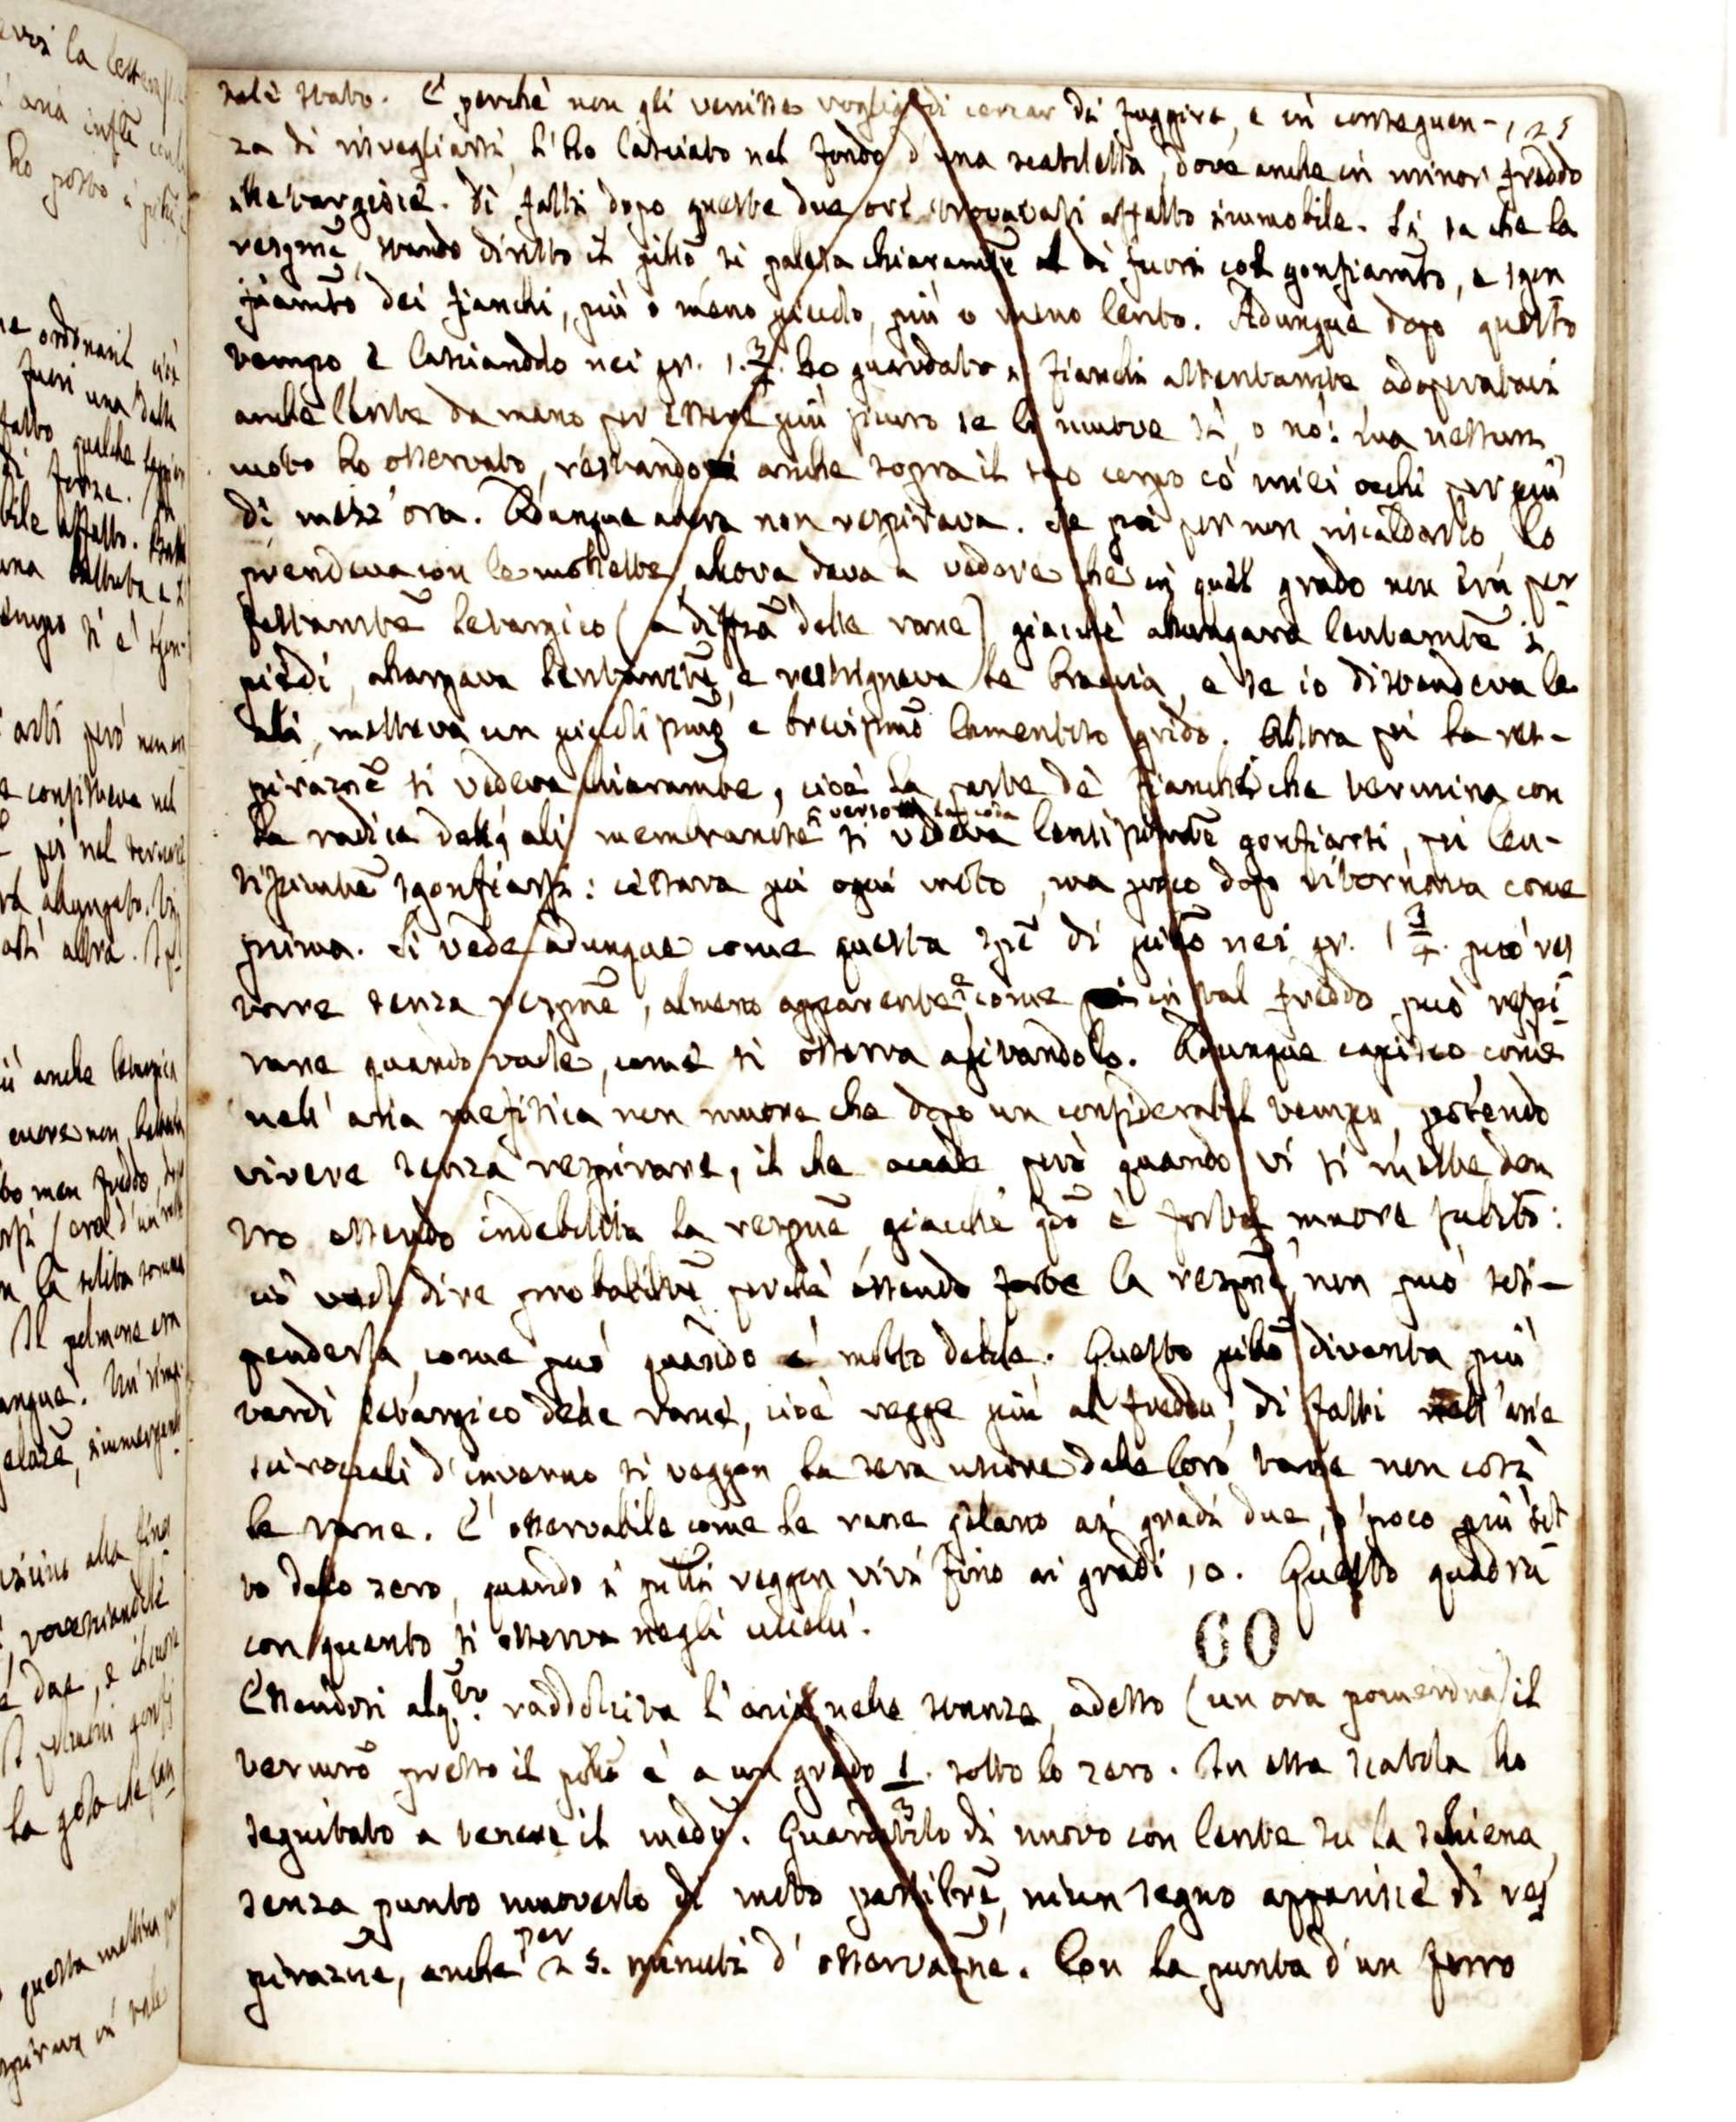 tale stato. E perchè non gli venisse voglia di cercar di fuggire, e in conseguen- 125
za di risvegliarsi, l'ho lasciato nel fondo d'una scatoletta, dove anche in minor freddo
alletargisce. Di fatti dopo queste due ore trovavasi affatto immobile. Si sa che la
respne stando diritto il pillo si palesa chiaramte al di fuori col gonfiamto, e sgon
fiamto dei fianchi, più o meno piccolo, più o meno lento. Adunque dopo questo
tempo e lasciandolo nei gr. 1. 3/4. ho guardato i fianchi attentamte adoperatavi
anche lente da mano per essere più sicuro se li muove sì, o nò: ma nessun
moto ho osservato, restando anche sopra il suo corpo co' miei occhi per più
di mezz'ora. Adunque allora non respirava. Se poi per non riscaldarlo lo
prendeva con le mollette, allora dava a vedere che in quel grado non era per
fettamte letargico (a diffza delle rane) giacchè allungava lentamte i
piedi, allargava lentamte, e restrigneva le braccia, e se io distendeva le
ali, metteva un piccolissimo e brevissimo lamentoso grido. Allora poi la res-
pirazne si vedeva chiaramte, cioè la parte de' fianchi che termina con
la radice delle ali membranose verso la coda si vedeva lentissimamte gonfiarsi, poi len-
tissimte sgonfiarsi: cessava poi ogni moto, ma poco dopo ritornava come
prima. Si vede adunque come questa spe di pillo nei gr. 1 3/4. può res
tare senza respne, almeno apparente, e come in tal freddo può respi
rare quando vuole, come si osserva agitandolo. Adunque capisco come
nell'aria mefitica non muore che dopo un considerabil tempo, potendo
vivere senza respirare, il che accade però quando vi si mette den
tro essendo indebolita la respne, giacchè se è forte muore subito:
ciò vuol dire probabilmte perchè essendo forte la respne, non può sos-
penderla, come può quando è molto debole. Questo pillo diventa più
tardi letargico delle rane, cioè regge più al freddo, di fatti nell'arie
sciroccali d'inverno si veggon la sera uscire dalle loro tane non così
le rane. E' osservabile come le rane gelano ai gradi due, o poco più sot
to dello zero, quando i pulli veggon vivi fino ai gradi 10. Questo quadra
con quanto si osserva negli uccelli.
60
Essendosi alqto raddolcita l'aria nelle stanze, adesso (un ora pomerdna) il
termro presso il pillo è a un grado 1/3. sotto lo zero. In essa scatola ho
seguitato a tenere il medo. Guardatolo di nuovo con lente su la schiena,
senza punto muoverlo di moto passibile, niun segno apparisce di res
pirazne, anche per 25. minuti d'osservazne. Con la punta d'un ferro